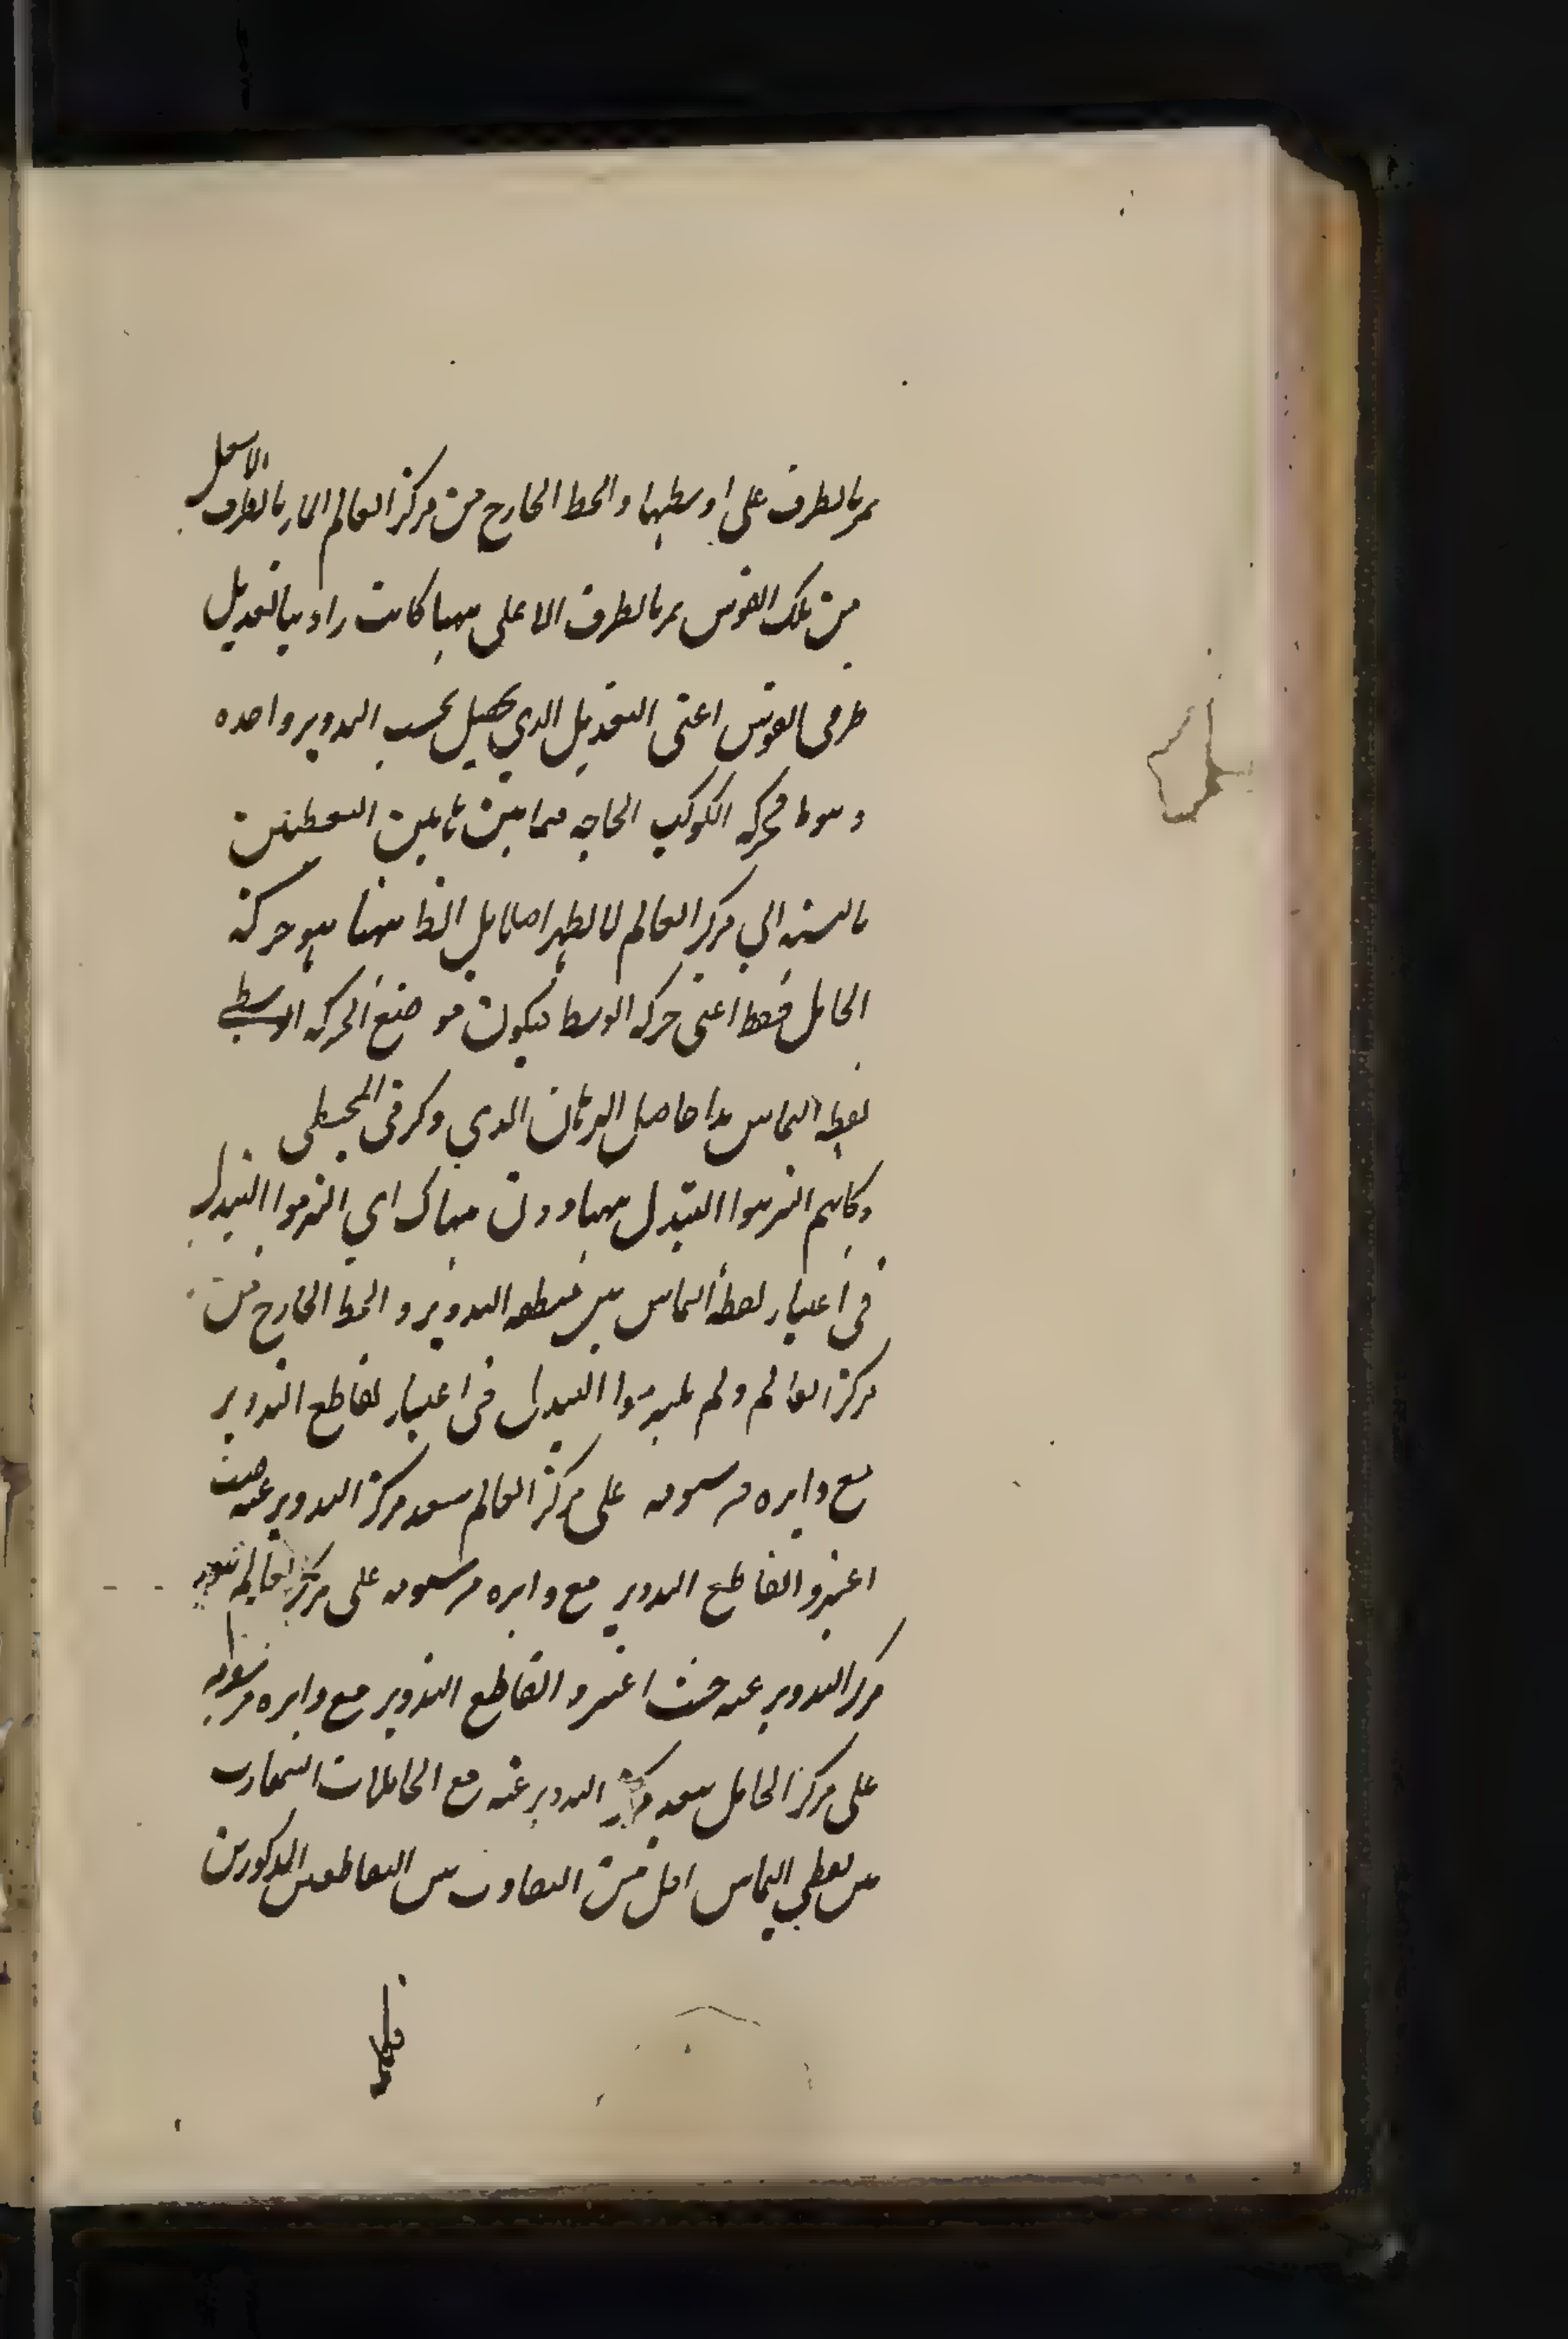 يمر بالطرف على اوسطها والخط الخارج من مركز العالم المار بالطرف الاسفل
من تلك القوس يمر بالطرف الاعلى منها كانت زاويتا تعديل
طرفي القوس اعنى التعديل الذي يحصل بحسب التدوير واحده
وسوط فحركه الكوكب الحاجه فيما بين هاتين النقطتين
بالنسبه الى مركز العالم لا تظهر اصلا بل الظ منها هو حركة
الحامل فقط اعنى حركه الوسط فيكون موضع الحركه الوسطى
نقطه التماس هذا حاصل البرهان الذي ذكر في المجسطى
وكانهم التزموا التبدل ههنا دون هناك اي التزموا التبدل
في اعتبار نقطة التماس بين منطقه التدوير والخط الخارج من
مركز العالم ولم يلتزموا التبدل في اعتبار تقاطع التدوير
مع دايره مرسومه على مركز العالم ببعد مركز التدوير عنه حيث
اعتبروا تقاطع التدوير مع دايره مرسومه على مركز العالم ببعد
مركز التدوير عنه حيث اعتبروا تقاطع التدوير مع دايره مرسومه
على مركز الحامل ببعد مركز التدوير عنه مع ان التفاوت
بين نقطتي التماس اقل من التفاوت بين التقاطعين المذكورين